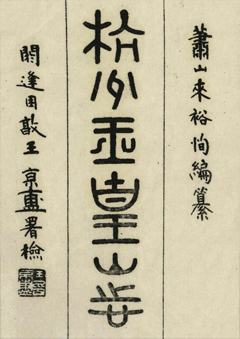 蕭山來裕恂編纂
杭州玉皇山志
閼逢困敦王京盙署檢